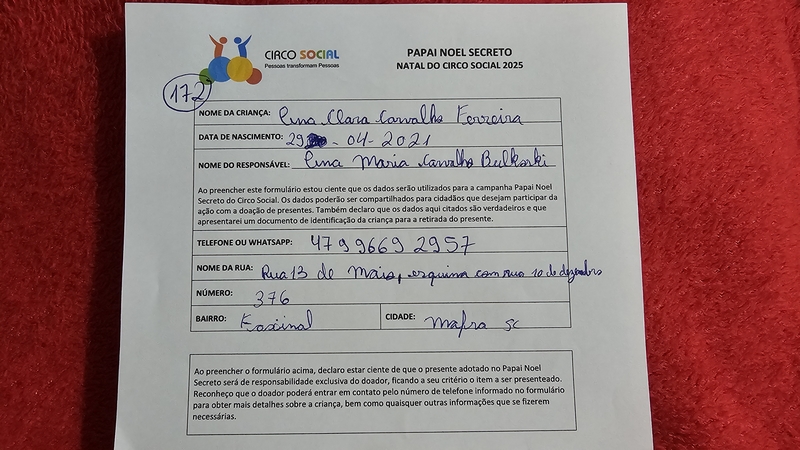 CIRCO SOCIAL
Pessoas transformam Pessoas
PAPAI NOEL SECRETO
NATAL DO CIRCO SOCIAL 2025
172
NOME DA CRIANÇA: Ana Clara Carvalho Ferreira
DATA DE NASCIMENTO: 29 - 04 - 2021
NOME DO RESPONSÁVEL: Ana Maria Carvalho
Ao preencher este formulário estou ciente que os dados serão utilizados para a campanha Papai Noel
Secreto do Circo Social. Os dados poderão ser compartilhados para cidadãos que desejam participar da
ação com a doação de presentes. Também declaro que os dados aqui citados são verdadeiros e que
apresentarei um documento de identificação da criança para a retirada do presente.
TELEFONE OU WHATSAPP: 47 9 9669 2957
NOME DA RUA: Rua 13 de Maio, esquina com rua 10 de dezembro
NÚMERO: 376
BAIRRO: Faxinal CIDADE: Mafra SC
Ao preencher o formulário acima, declaro estar ciente de que o presente adotado no Papai Noel
Secreto será de responsabilidade exclusiva do doador, ficando a seu critério o item a ser presenteado.
Reconheço que o doador poderá entrar em contato pelo número de telefone informado no formulário
para obter mais detalhes sobre a criança, bem como quaisquer outras informações que se fizerem
necessárias.